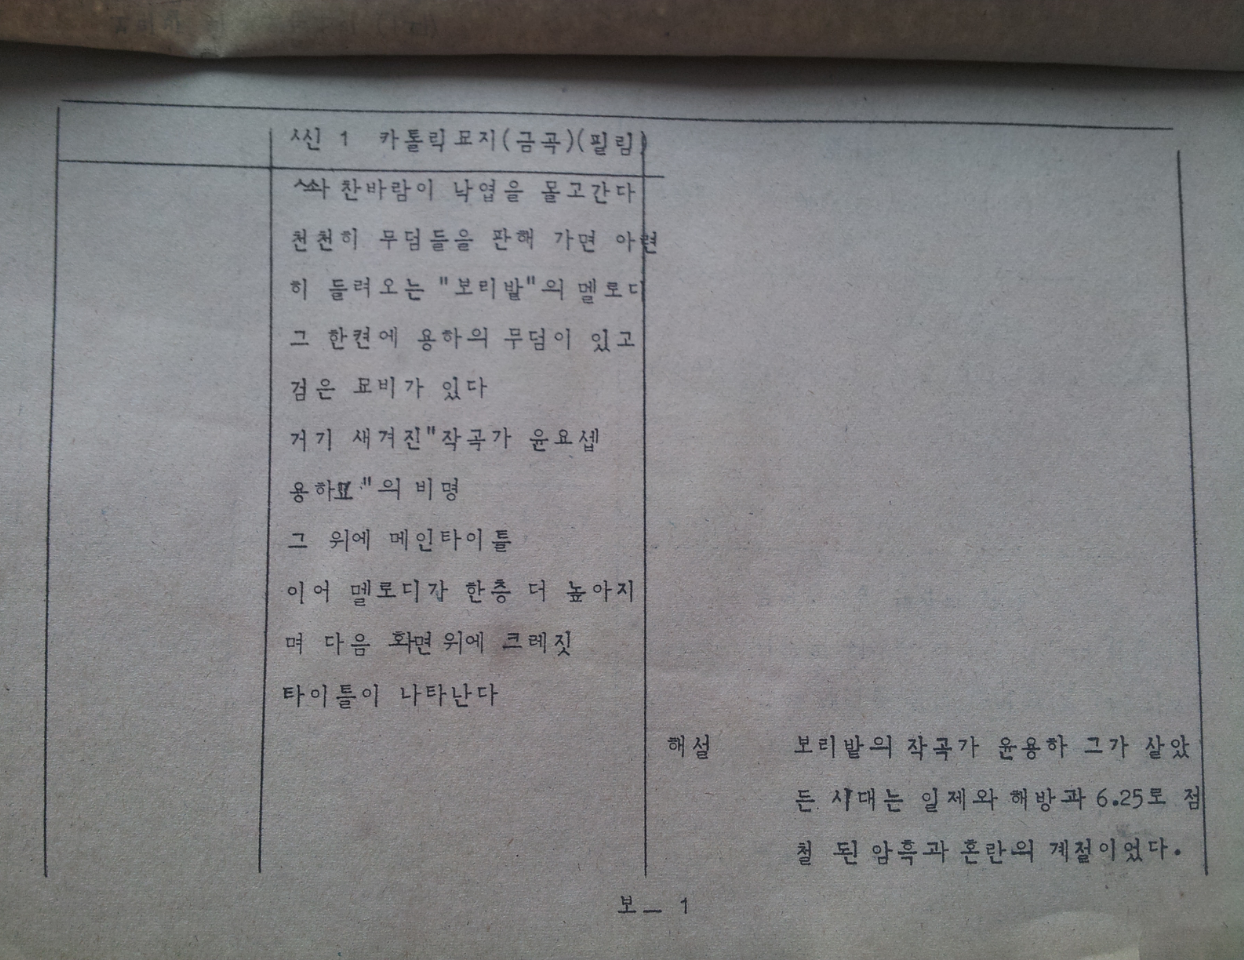 씬 1 카톨릭묘지(금곡)(필림)
쏴 찬바람이 낙엽을 몰고간다
천천히 무덤들을 판해 가면 아련
히 들려오는 "보리밭"의 멜로디
그 한켠에 용하의 무덤이 있고
검은 묘비가 있다
거기 새겨진"작곡가 윤요셉
용하묘"의 비명
그 위에 메인타이틀
이어 멜로디가 한층 더 높아지
며 다음 화면위에 크레짓
타이틀이 나타난다
해설 보리밭의 작곡가 윤용하 그가 살았
든 시대는 일제와 해방과 6.25로 점
철 된 암흑과 혼란의 계절이었다.
보_ 1